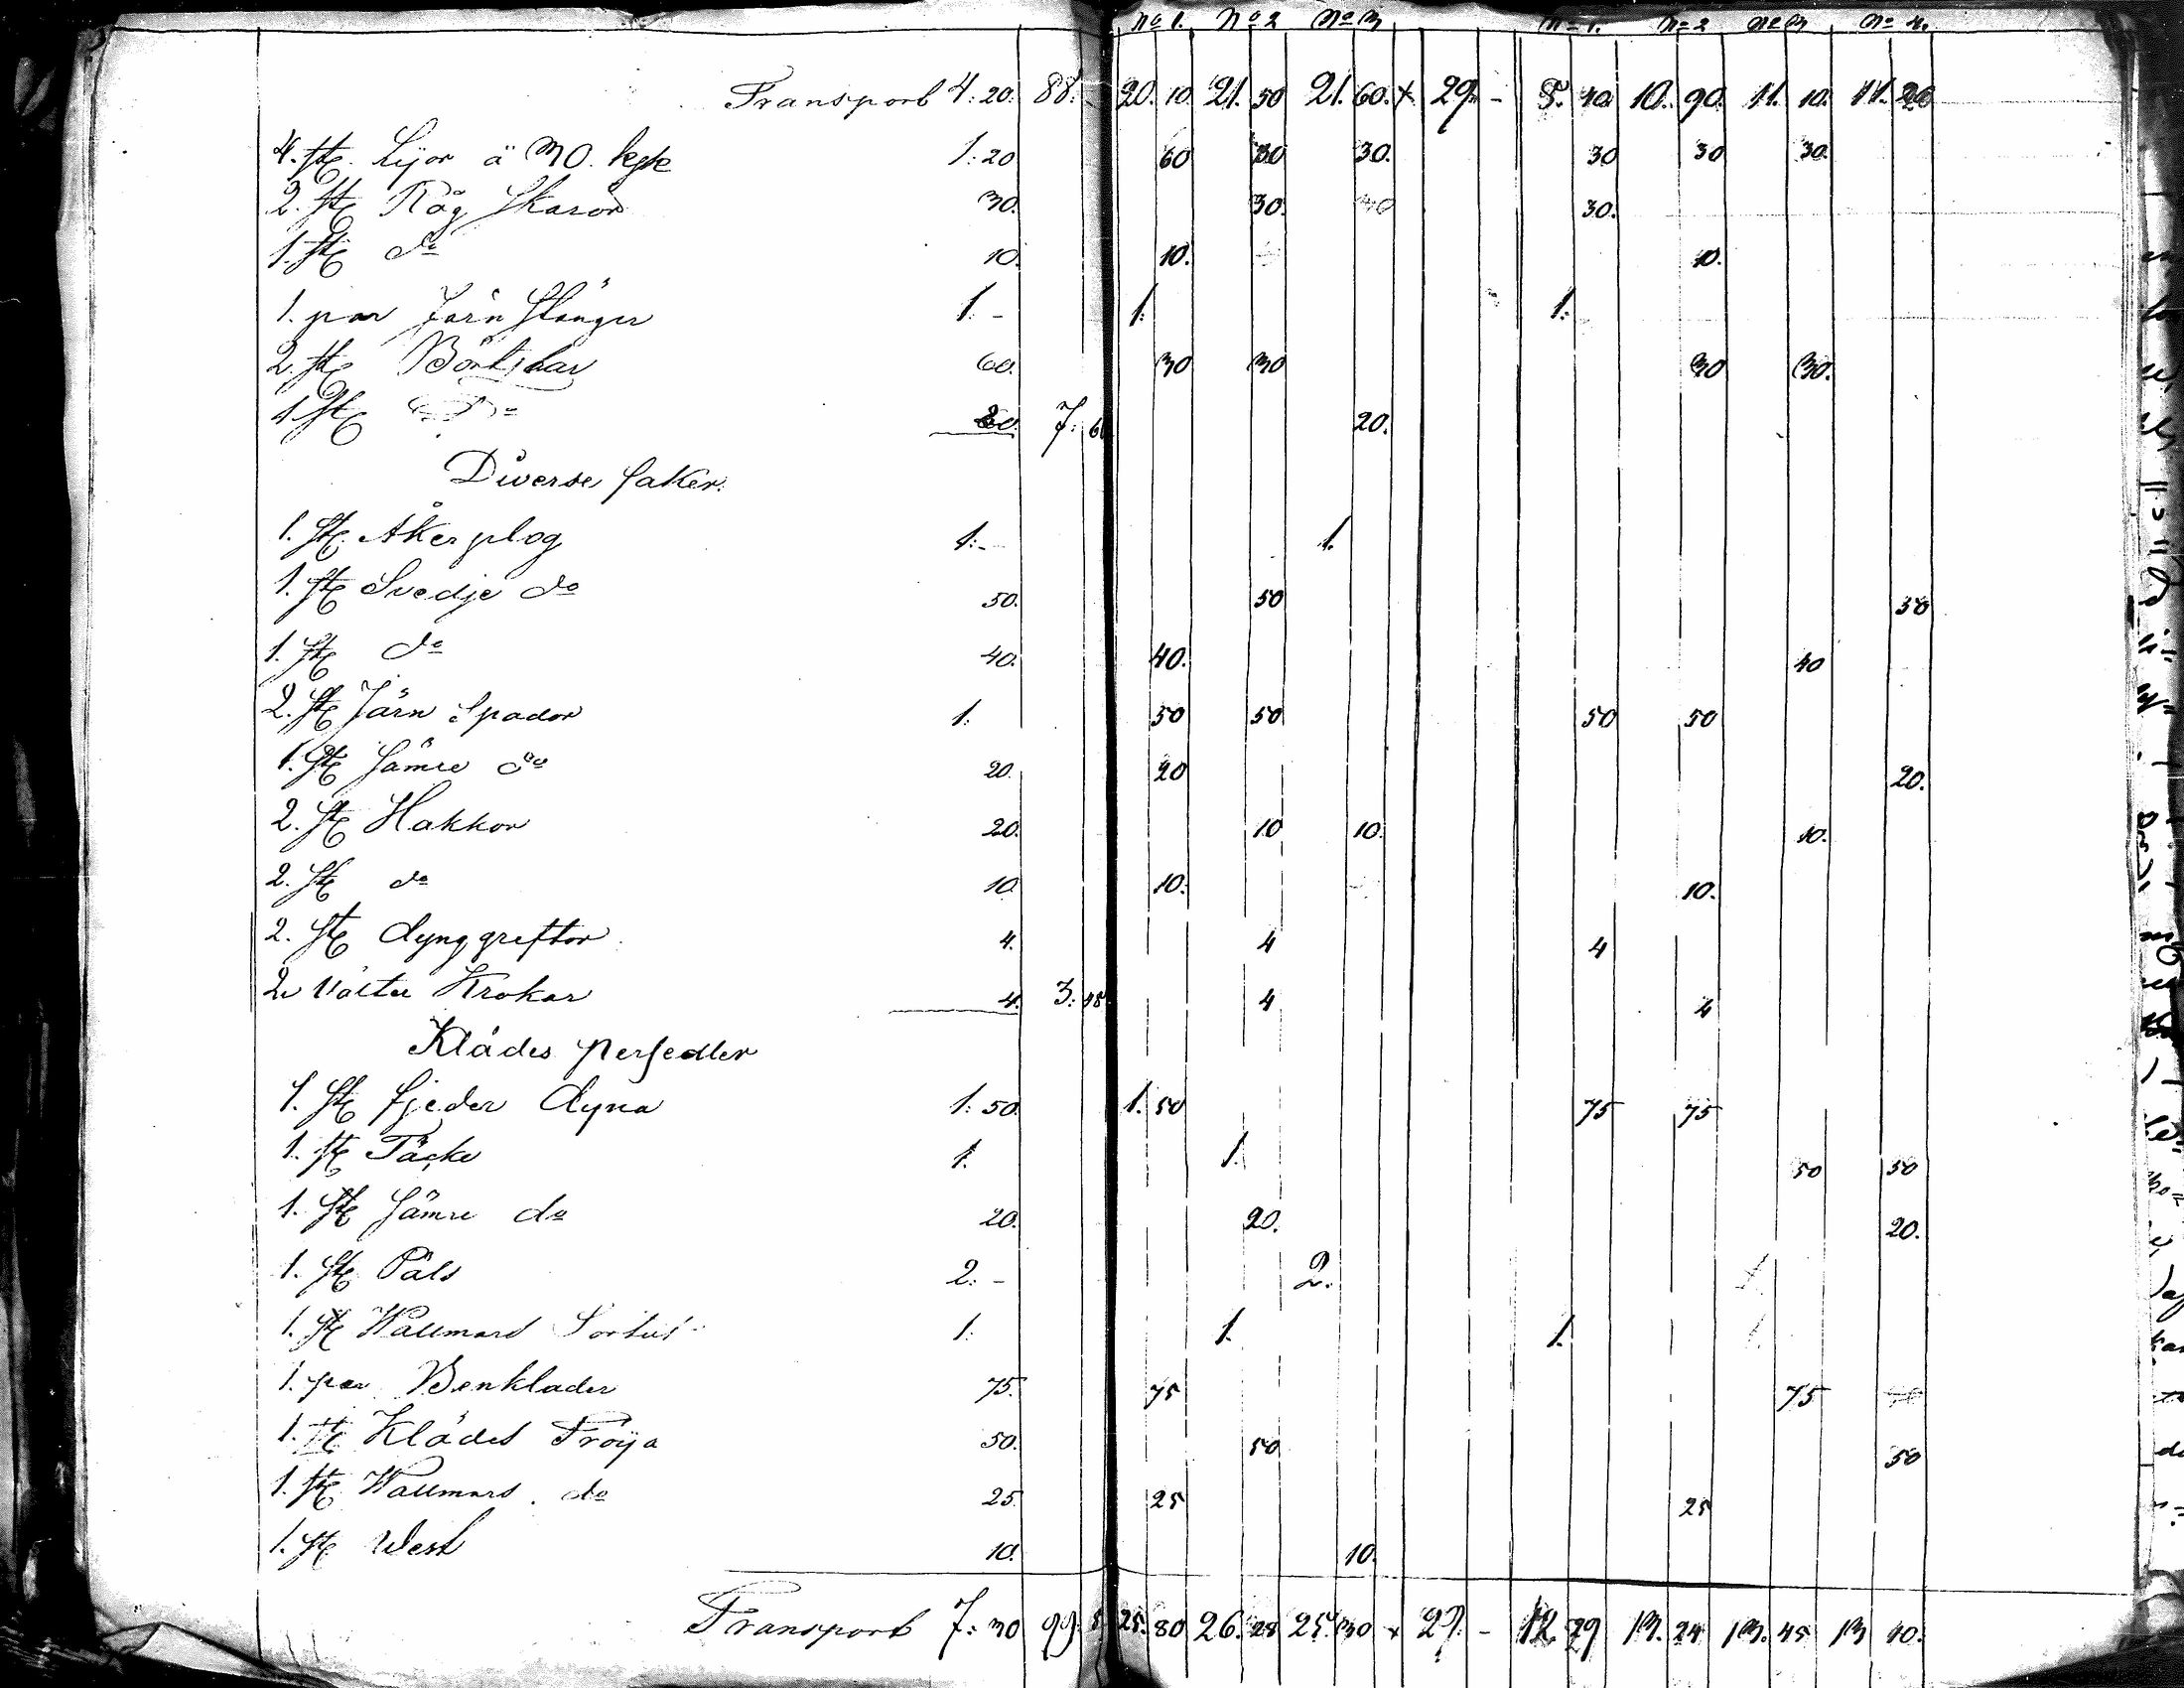 No 1. No 2 No 3 No 1. No 2 No 3 No 4.
Transport 4: 20. 88: - 20. 10 21. 50 21. 60. x 29. - 5. 40. 10. 90. 11. 10. 11. 20
4. st. Lijor á 30. kpk 1: 20 60 30 30. 30 30 30.
2. st. Råg Skäror 30. 30. 30.
1. st. do 10. 10. 10.
1. par Järn Stänger 1. - 1: 1:
2. st. 60. 30 30 30 30.
1 st. Do 20. 7: 60 20.
Diverse saker.
1. st. Åker plog 1:- 1.
1. st. Svedje do 50. 50 50
1. st. do 40. 40. 40
2. st. Järn Spador 1: 50 50 50 50
1. st. sämre do 20. 20 20.
2. st. Hakkor 20. 10 10. 10.
2. st. do 10 10. 10.
2. st. dynggreftor 4. 4 4
2 Krokar 4. 3: 48 4 4
Klådes persedler
1. st. fjeder dyna 1: 50. 1. 50 75 75
1. st. Täcke 1. 1. 50 50
1. st. sämre do 20. 20. 20.
1. st. Päls 2: - 2.
1. st. Wallmars Sortut 1: 1. 1.
1. par Benkläder 75. 75 75
1. st. Klådes Tröija 50. 50 50
1. st. Wallmars do 25 25 25
1. st. West 10. 10.
Transport 7: 30 99: 8 25. 80 26. 28 25. 30 x 29. - 12 29 13. 24 13. 45 13 10.